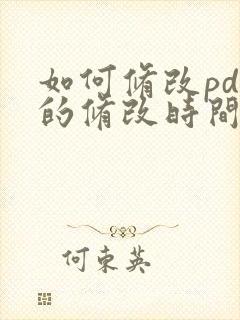 如何修改pd
的修改時間
何東英